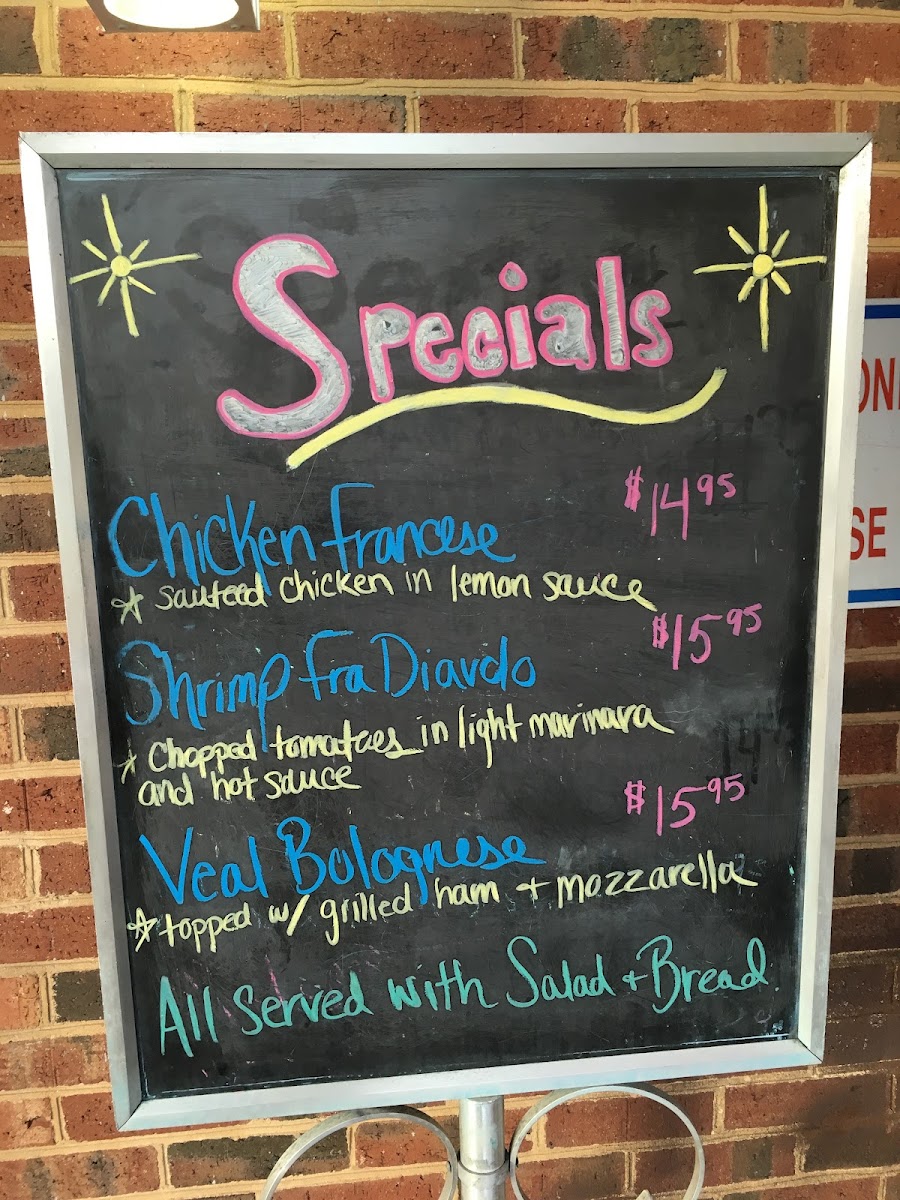 Specials
Chicken Francese $14.95
* sauteed chicken in lemon sauce
Shrimp Fra Diavolo $15.95
* Chopped tomatoes in light marinara
and hot sauce
Veal Bolognese $15.95
* topped w/ grilled ham + mozzarella
All Served with Salad + Bread
ON
SE